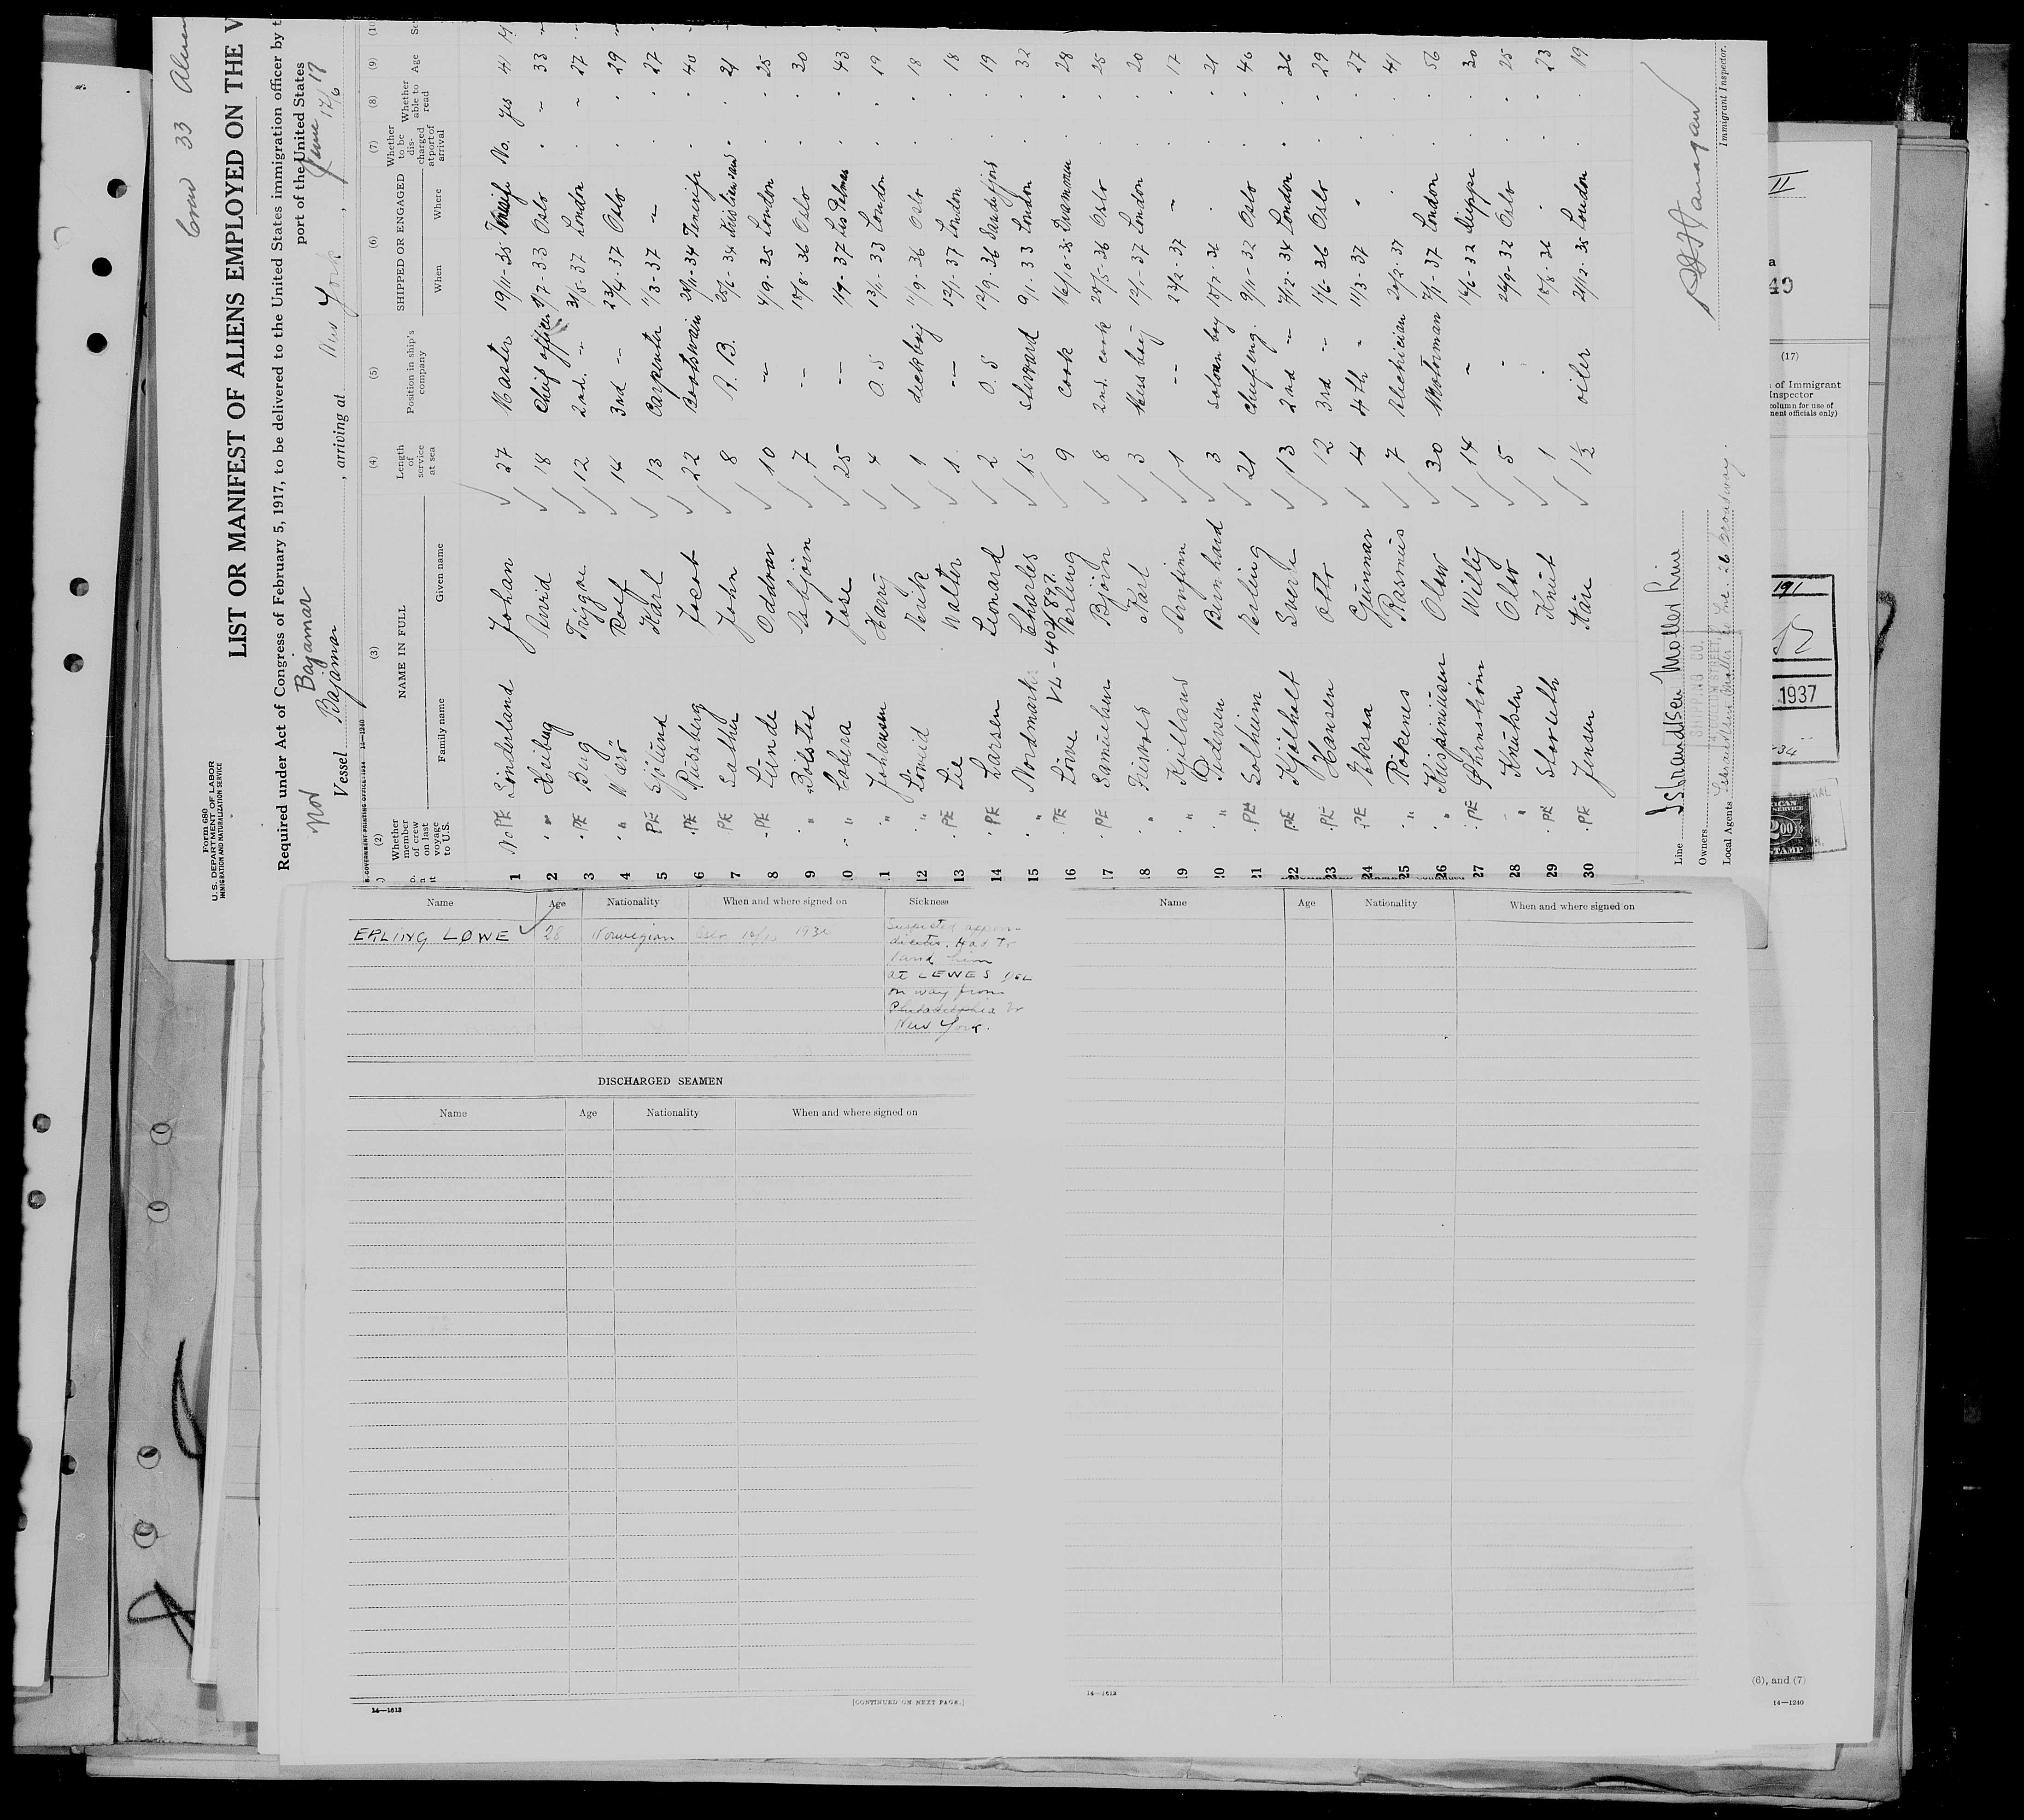 Crew 33 Alien
Form 680
U. S. DEPARTMENT OF LABOR
IMMIGRATION AND NATURALIZATION SERVICE
LIST OR MANIFEST OF ALIENS EMPLOYED ON THE V
Required under Act of Congress of February 5, 1917, to be delivered to the United States immigration officer by t
port of the United States
Nor Bajamar
Vessel Bajamar , arriving at New York , June 17/6 19
(2) (3) (4) (5) (6) (7) (8) (9)
Whether member of crew on last voyage to U.S. NAME IN FULL Length of service at sea Position in ship's company SHIPPED OR ENGAGED Whether to be discharged at port of arrival Whether able to read Age
Family name Given name When Where
1 No PE Sönderland Johan 27 Master 19/11-35 Tenerife No. Yes 41
2 " " Heiberg 18 Chief officer 9/7-33 Oslo " " 33
3 " PE Berg Trygve 12 2nd. - 31/5-37 London " " 27
4 " " Rolf 14 3rd - 23/4-37 Oslo " " 29
5 PE Karl 13 Carpenter 11/3-37 - " " 27
6 " PE Russberg 22 Bootswain 34 Tenerife " " 40
7 PE Sather John 8 A. B. 25/6-34 " " 21
8 " PE Lunde Oddvar 10 - 4/9-35 London " " 25
9 " Bolsted Asbjörn 7 - 18/8-36 Oslo " " 30
10 - " Cabera Jose 25 - 1/9-37 Las Palmas " " 43
11 " Johansen Harry 4 O. S 13/11-33 London " " 19
12 " Lömid Erik 1 deckboy 11/9-36 Oslo " " 18
13 " PE Lie Walter 1 - 12/1-37 London " " 18
14 " PE Larsen Leonard 2 O. S 12/9-36 Sandefjord " " 19
15 " Nordmark Charles 15 Steward 9/1-33 London " " 32
VL-402892
16 " PE Löwe Erling 9 Cook 16/10-35 Drammen " " 28
17 " PE Samuelsen Björn 8 2nd. cook 25/5-36 Oslo " " 25
18 " Karl 3 Mess boy 12/1-37 London " " 20
19 " Kjelland 1 - 23/2-37 - " 17
20 " Pedersen Bernhard 3 Salon boy 18/7-36 " " " 21
21 " PE Solheim Erling 21 Chief eng. 9/11-32 Oslo " " 46
22 PE Kjölholt Sverre 13 2nd - 7/12-34 London " " 36
23 " PE Hansen Otto 12 3rd - 1/6-36 Oslo " " 29
24 PE Gunnar 4 4th - 11/3-37 " " " 27
25 " Rökenes Rasmus 7 Elechician 20/2-37 " " " 41
26 " Olav 30 Motorman 7/1-37 London " " 56
27 " PE Ohrnström Willy 14 - 16/6-32 Dieppe " " 30
28 - " Knutsen Olav 5 - 24/9-32 Oslo " " 25
29 " PE Knut 1 " 18/8-36 " " " 23
30 " PE Jensen Kåre 1½ oiler 21/12-35 London " " 19
Line Isbrandtsen Moller Line
Owners
Local Agents Isbrandtsen Moller Co Inc 26 Broadway.
Immigrant Inspector.
(17)
of Immigrant
Inspector
column for use of
ment officials only)
191
1937
Name Age Nationality When and where signed on Sickness
ERLING LØWE 28 Norwegian Oslo 16/10 193
Suspected appen-
dicitis. Had to
land him
at LEWES Del
on way from
Philadelphia to
New York.
DISCHARGED SEAMEN
Name Age Nationality When and where signed on
14—1613
[CONTINUED ON NEXT PAGE.]
Name Age Nationality When and where signed on
14—1613
(6), and (7)
14—1240